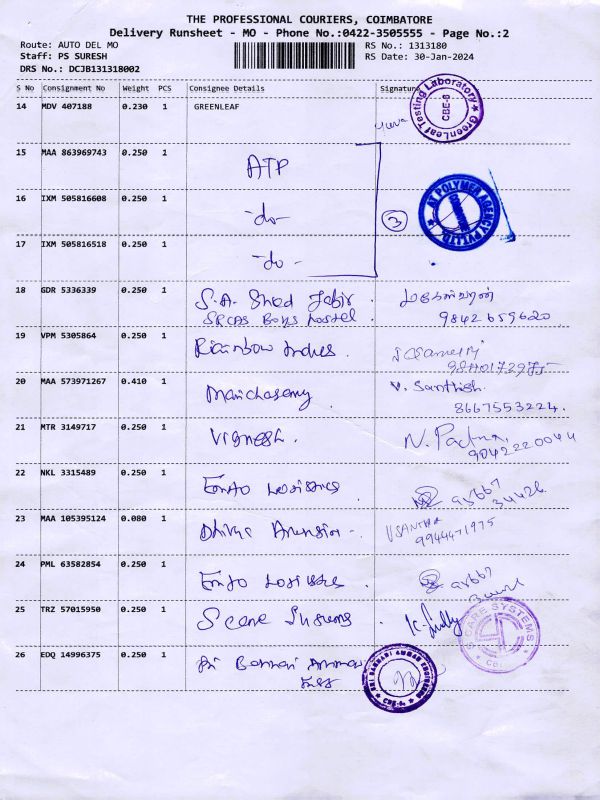 THE PROFESSIONAL COURIERS, COIMBATORE
Delivery Runsheet - MO - Phone No.:0422-3505555 - Page No.:2
Route: AUTO DEL MO
RS No.: 1313180
Staff: PS SURESH
RS Date: 30-Jan-2024
DRS No.: DCJB131318002
S No Consignment No Weight PCS Consignee Details Signature
14 MDV 407188 0.230 1 GREENLEAF
GreenLeaf Testing Laboratory CBE-6
15 MAA 863969743 0.250 1 ATP
16 IXM 505816608 0.250 1 -do- 3
AT POLYMER AGENCY PVT LTD
17 IXM 505816518 0.250 1 -do-
18 GDR 5336339 0.250 1 S.A. Jabir
SRCAS Boys Hostel 9842659620
19 VPM 5305864 0.250 1 Rainbow
20 MAA 573971267 0.410 1 V. Santhish.
8667553224.
21 MTR 3149717 0.250 1 Vignesh. N. Padma,
9042220044
22 NKL 3315489 0.250 1
23 MAA 105395124 0.080 1 V SANTHA
9944471975
24 PML 63582854 0.250 1
25 TRZ 57015950 0.250 1
S CARE SYSTEMS
26 EDQ 14996375 0.250 1 Sri Bannari Amman
SRI BANNARI AMMAN CBE-6.